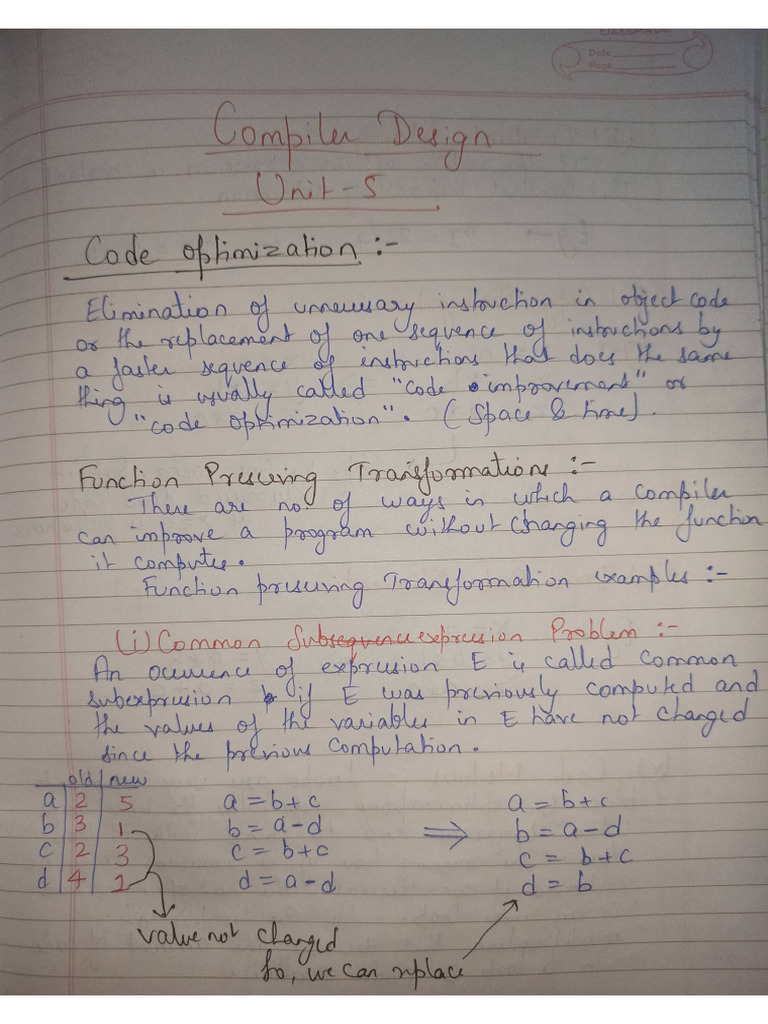 CLASSMATE
Date
Page
Compiler Design
Unit-5
Code optimization :-
Elimination of unnecessary instruction in object code
or the replacement of one sequence of instructions by
a faster sequence of instructions that does the same
thing is usually called "code improvement" or
"code optimization". (Space & time).
Function Preserving Transformations :-
There are no. of ways in which a compiler
can improve a program without changing the function
it computes.
Function preserving Transformation examples :-
(i) Common Subsequence expression Problem :-
An occurence of expression E is called common
subexpression if E was previously computed and
the values of the variables in E have not changed
since the previous computation.
old new
a 2 5 a = b+c a = b+c
b 3 1 b = a-d ⇒ b = a-d
c 2 3 c = b+c c = b+c
d 4 1 d = a-d d = b
value not changed
So, we can replace